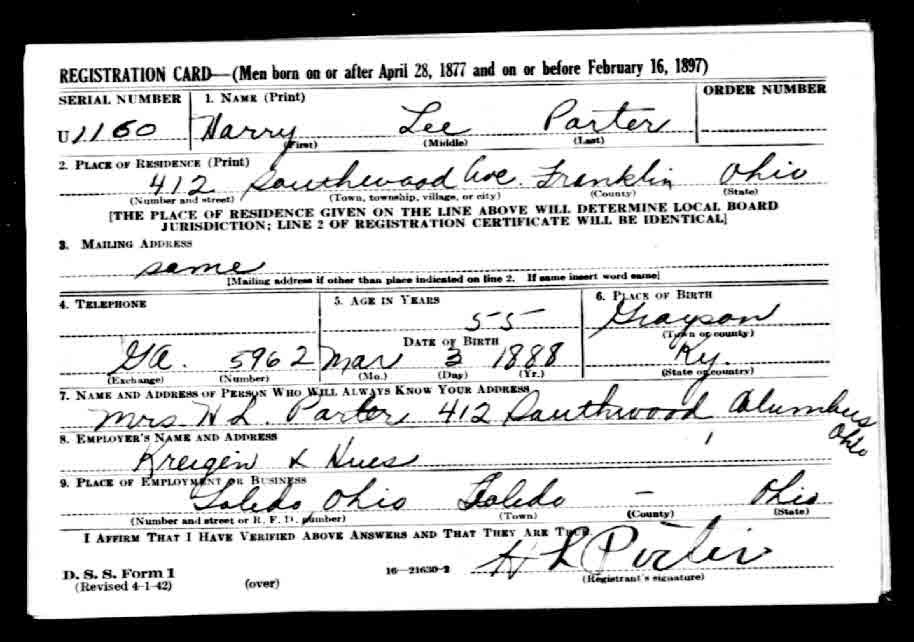 REGISTRATION CARD—(Men born on or after April 28, 1877 and on or before February 16, 1897)
SERIAL NUMBER 1. NAME (Print) ORDER NUMBER
U 1150 Harry Lee Porter
(First) (Middle) (Last)
2. PLACE OF RESIDENCE (Print)
412 Southwood Ave. Franklin Ohio
(Number and street) (Town, township, village, or city) (County) (State)
[THE PLACE OF RESIDENCE GIVEN ON THE LINE ABOVE WILL DETERMINE LOCAL BOARD
JURISDICTION; LINE 2 OF REGISTRATION CERTIFICATE WILL BE IDENTICAL]
3. MAILING ADDRESS
same
[Mailing address if other than place indicated on line 2. If same insert word same]
4. TELEPHONE 5. AGE IN YEARS 6. PLACE OF BIRTH
55 Grayson
(Town or county)
DATE OF BIRTH
GA. 5962 Mar 3 1888 Ky.
(Exchange) (Number) (Mo.) (Day) (Yr.) (State or country)
7. NAME AND ADDRESS OF PERSON WHO WILL ALWAYS KNOW YOUR ADDRESS
Mrs H L. Porter 412 Southwood Columbus
Ohio
8. EMPLOYER'S NAME AND ADDRESS
9. PLACE OF EMPLOYMENT OR BUSINESS
Toledo, Ohio Toledo — Ohio
(Number and street or R. F. D. number) (Town) (County) (State)
I AFFIRM THAT I HAVE VERIFIED ABOVE ANSWERS AND THAT THEY ARE TRUE.
H L Porter
D. S. S. Form 1
(Revised 4-1-42) (over) 16—21630-2 (Registrant's signature)